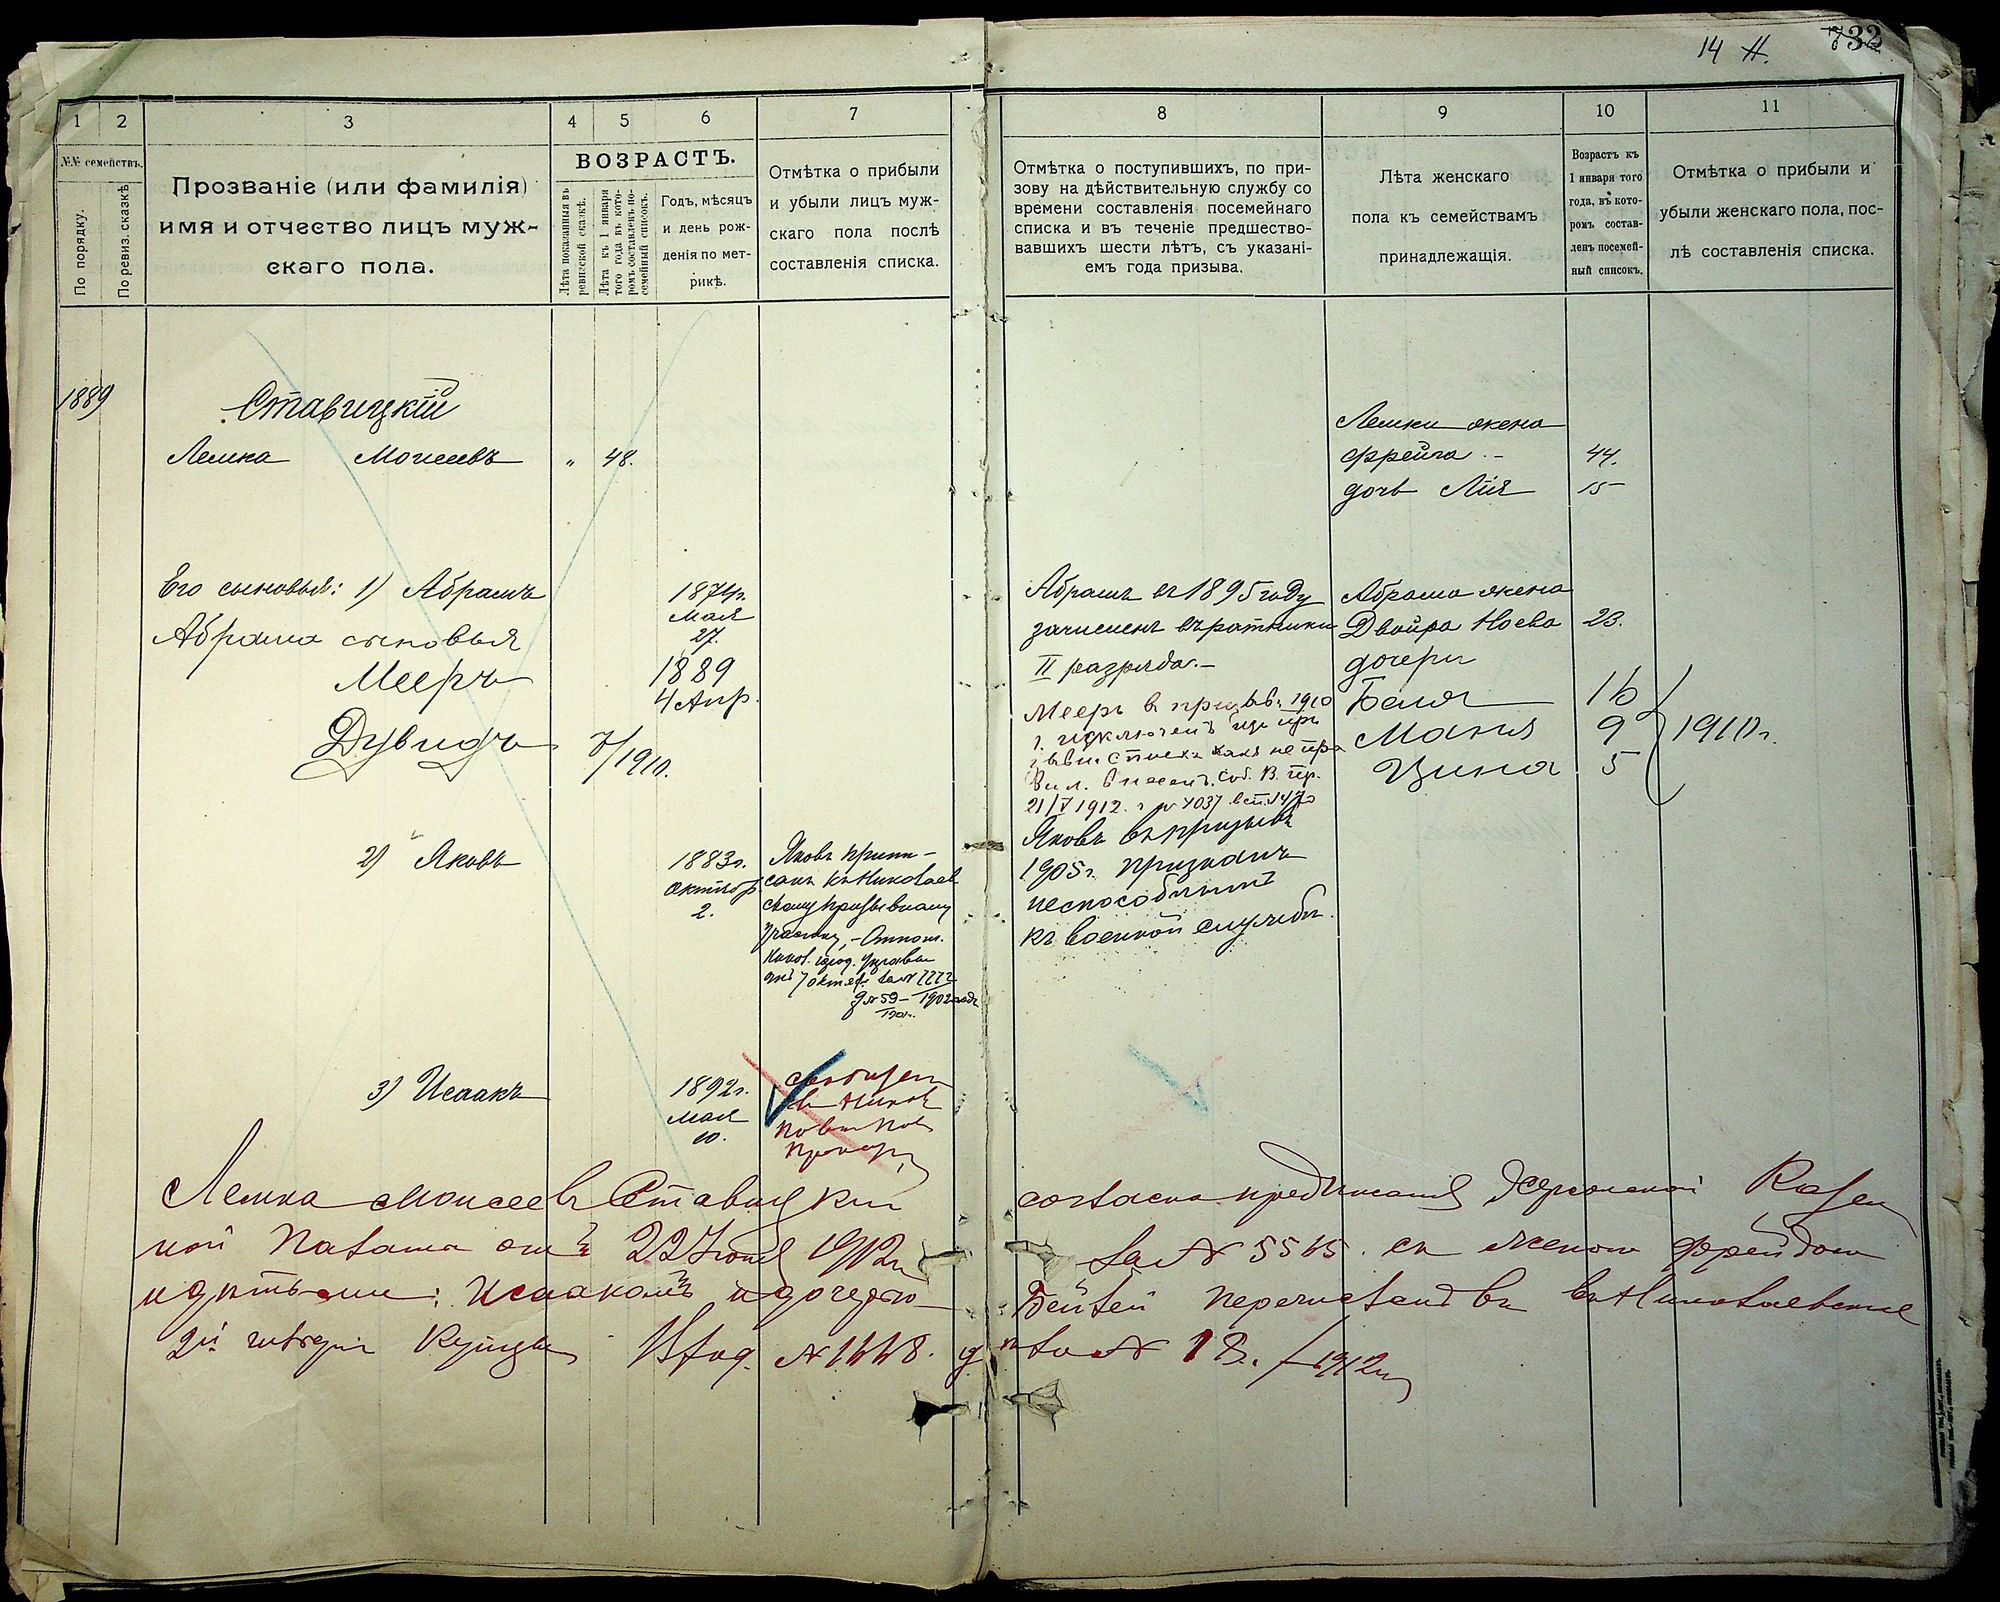 14 н.
732
1
2
3
4
5
6
7
8
9
10
11
№№ семействъ.
По порядку.
По ревиз. сказкѣ
Прозваніе (или фамилія)
имя и отчество лицъ муж-
скаго пола.
ВОЗРАСТЪ.
Лѣта показанныя въ
ревизской сказкѣ.
Лѣта къ 1 января
того года въ кото-
ромъ составленъ по-
семейный списокъ.
Годъ, мѣсяцъ
и день рож-
денія по мет-
рикѣ.
Отмѣтка о прибыли
и убыли лицъ муж-
скаго пола послѣ
составленія списка.
Отмѣтка о поступившихъ, по при-
зову на дѣйствительную службу со
времени составленія посемейнаго
списка и въ теченіе предшество-
вавшихъ шести лѣтъ, съ указані-
емъ года призыва.
Лѣта женскаго
пола къ семействамъ
принадлежащія.
Возрастъ къ
1 января того
года, въ кото-
ромъ состав-
ленъ посемей-
ный списокъ.
Отмѣтка о прибыли и
убыли женскаго пола, пос-
лѣ составленія списка.
1889
Ставицкій
Лемка Моисеевъ " 48.
Лемки жена
Фрейга - 44.
дочь Лія 15
Его сыновья: 1) Абрамъ
1874г.
Мая
27.
Абрама сыновья
Мееръ
1889
4 Апр.
Дувидъ 7/1910.
Абрамъ въ 1895 году
зачисленъ въ ратники
II разряда. -
Мееръ в призывъ 1910
г. исключенъ изъ при
21/V 1912. г № 4037
Абрама жена
Двойра Ноева 23.
дочери
Беля 16
Маня 9
Цина 5
1910г.
2) Яковъ
1883г.
Октябр.
2.
Яковъ припи-
санъ къ Николаев
скому призывному
участку, - Отнош.
Никол. город. управы
отъ 7 октяб. за № 7272
Яковъ въ призывъ
1905г. признанъ
неспособнымъ
къ военной службѣ.
3) Исаакъ
1892г.
Мая
10.
Лемка Моисеевъ Ставицкий
согласно предписанія Херсонской Казен
ной Палаты отъ 22 Іюня 1912г
за № 5565 съ женою Фрейдою
и дѣтьми: Исаакомъ и дочерью
Бейлей перечисленъ въ Николаевские
2й гильдіи купцы Вход. № 1668. д
за № 18. / 1912г